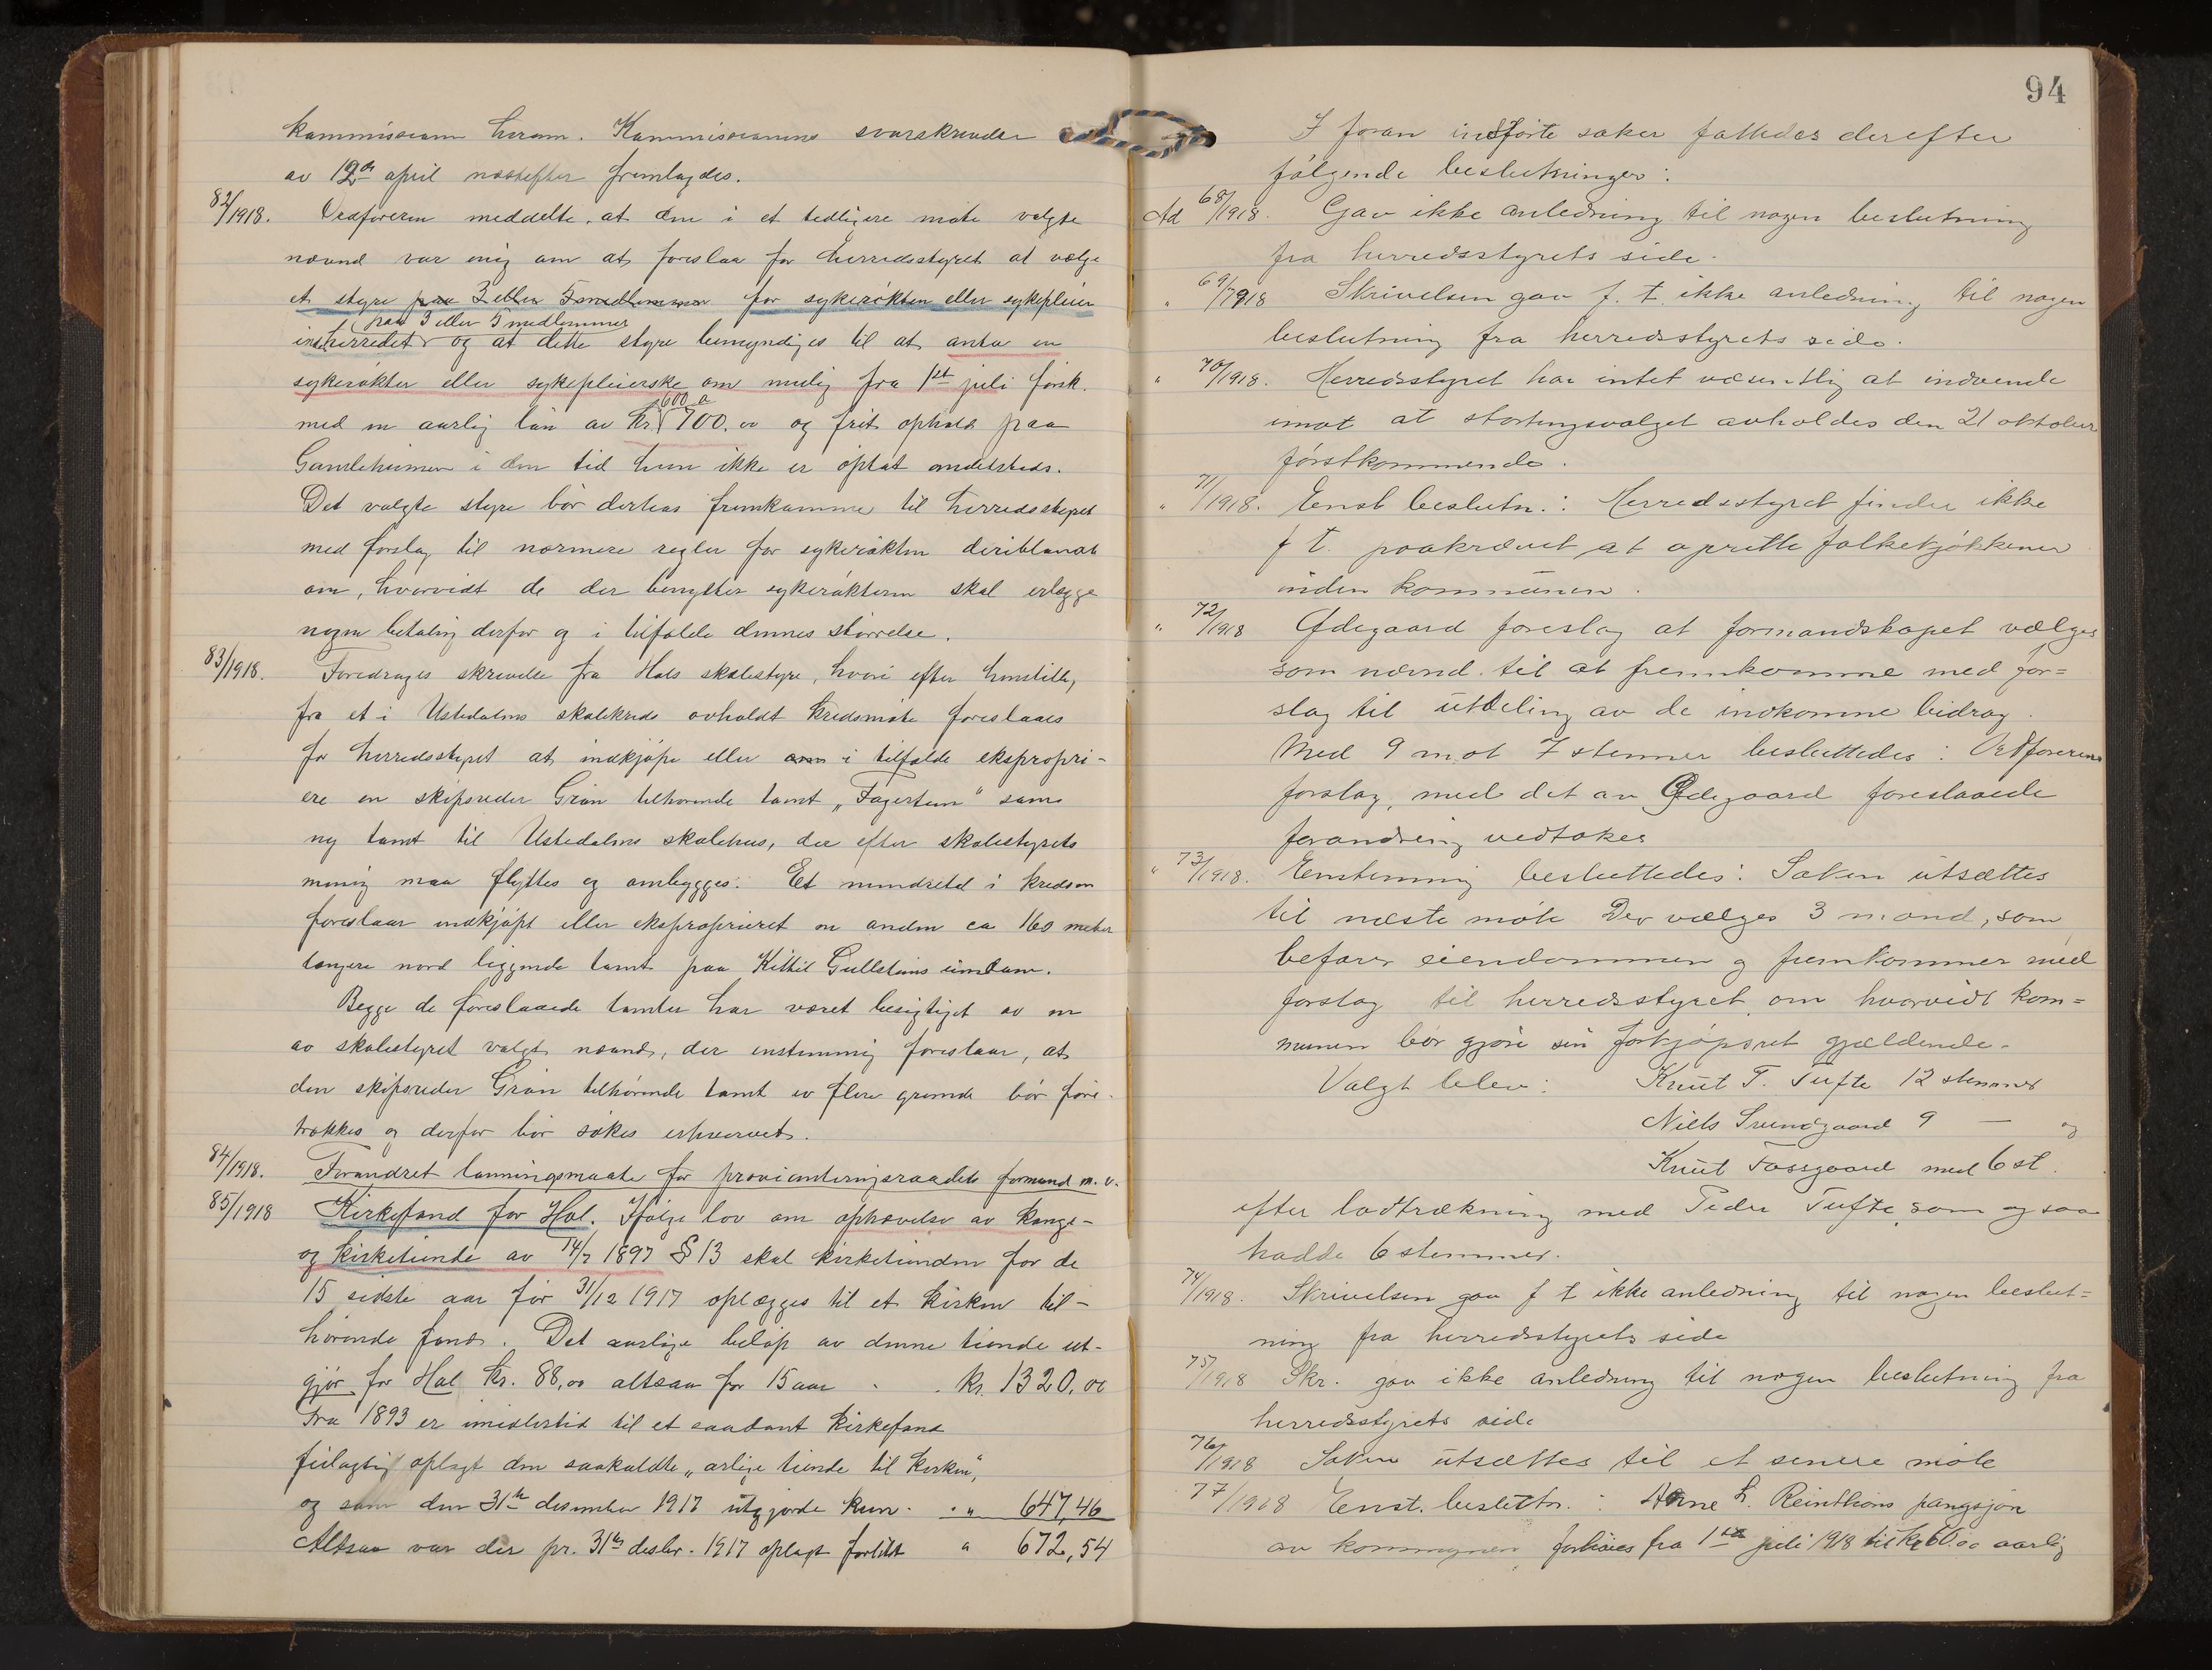 kommissionen herom. Kommissionens svarskrivelse
av 12te april næstefter fremlagdes.
82/1918. Ordføreren meddelte, at den i et tidligere møte valgte
nævnd var enig om at foreslaa for herredsstyret at vælge
et styre paa 3 eller 5 medlemmer for sykerøkten eller sykepleien
paa 3 eller 5 medlemmer
inden herredet og at dette styre bemyndiges til at anta en
sykerøkter eller sykepleierske om mulig fra 1st juli førsk.
600 a
med en aarlig løn av Kr. 700.00 og frit ophold paa
Gamlehimen i den tid hun ikke er optat andetsteds.
Det valgte styre bør derhos fremkomme til herredsstyret
med forslag til nærmere regler for sykerøkten deriblandt
om, hvorvidt de der benytter sykerøkteren skal erlægge
nogen betaling derfor og i tilfælde dennes størrelse.
83/1918. Foredrages skrivelse fra Hols skolestyre, hvori efter henstilling
fra et i Ustedalens skolekreds avholdt kredsmøte foreslaaes
for herredsstyret at indkjøpe eller om i tilfælde ekspropri-
ere en skipsreder Grøn tilhørende tomt „Fagertun" som
ny tomt til Ustedalens skolehus, der efter skolestyrets
mening maa flyttes og ombygges. Et mindretal i kredsen
foreslaar indkjøpt eller ekspropriert en anden ca 160 meter
længere nord liggende tomt paa Kittil Gullsteins eiendom.
Begge de foreslaaede tomter har været besigtiget av en
av skolestyret valgt nævnd, der enstemmig foreslaar, at
den skipsreder Grøn tilhørende tomt av flere grunde bør fore-
trækkes og derfor bør søkes erhvervet.
84/1918. Forandret lønningsmaate for provianteringsraadets formand m.v.
85/1918 Kirkefond for Hol. Ifølge lov om ophævelse av konge-
og kirketiende av 14/7 1897 § 13 skal kirketienden for de
15 sidste aar før 31/12 1917 oplægges til et kirken til-
hørende fond. Det aarlige beløp av denne tiende ut-
gjør for Hol kr. 88,00 altsaa for 15 aar - . kr. 1320,00
Fra 1893 er imidlertid til et saadant kirkefond
feilagtig oplagt den saakaldte „arlige tiende til kirken",
og som den 31te desember 1917 utgjorde kun . . „ 647,46
Altsaa var der pr. 31te desbr. 1917 oplagt forlitet „ 672,54
94
I foran indførte saker fattedes derefter
følgende beslutninger:
Ad 68/1918. Gav ikke anledning til nogen beslutning
fra herredsstyrets side.
„ 69/1918 Skrivelsen gav f. t. ikke anledning til nogen
beslutning fra herredsstyrets side.
„ 70/1918. Herredsstyret har intet væsentlig at indvende
imot at stortingsvalget avholdes den 21 oktober
førstkommende.
„ 71/1918. Enst beslutn.: Herredsstyret finder ikke
f t. paakrævet at oprette folkekjøkkener
inden kommunen.
„ 72/1918 Ødegaard foreslog at formandskapet vælges
som nævnd til at fremkomme med for=
slag til utdeling av de indkomne bidrag.
Med 9 mot 7 stemmer besluttedes: Ordførerens
forslag, med det av Ødegaard foreslaaede
forandring vedtakes
„ 73/1918. Enstemmig besluttedes: Saken utsættes
til næste møte Der vælges 3 mænd, som
befarer eiendommen og fremkommer med
forslag til herredsstyret om hvorvidt kom=
munen bør gjøre sin forkjøpsret gjældende.
Valgt blev: Knut T. Tufte 12 stemmer
Niels Sundgaard 9 — og
Knut Fossgaard med 6 st.
efter lodtrækning med Peder Tufte som ogsaa
hadde 6 stemmer.
74/1918. Skrivelsen gav f t ikke anledning til nogen beslut=
ning fra herredsstyrets side
75/1918 Skr. gav ikke anledning til nogen beslutning fra
herredsstyrets side
76/1918 Saken utsættes til et senere møte
77/1918 Enst. beslettn.: Arne L. Reintons pangsjon
av kommunen forhøies fra 1ste juli 1918 til kr 60.00 aarlig